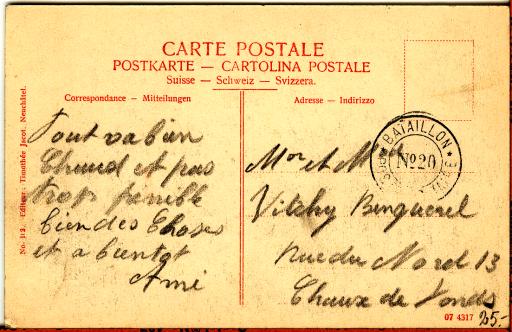 CARTE POSTALE
POSTKARTE — CARTOLINA POSTALE
Suisse — Schweiz — Svizzera.
Correspondance — Mitteilungen
Adresse — Indirizzo
Tout va bien
Chaud et pas
trop penible
bien des Choses
et a bientot
Ami
BATAILLON
No 20
Mor et Mme
Vilchy Benguerel
Rue du Nord 13
Chaux de Fonds
07 4317
25.-
No. 112. Editeur: Timothée Jacot, Neuchâtel.